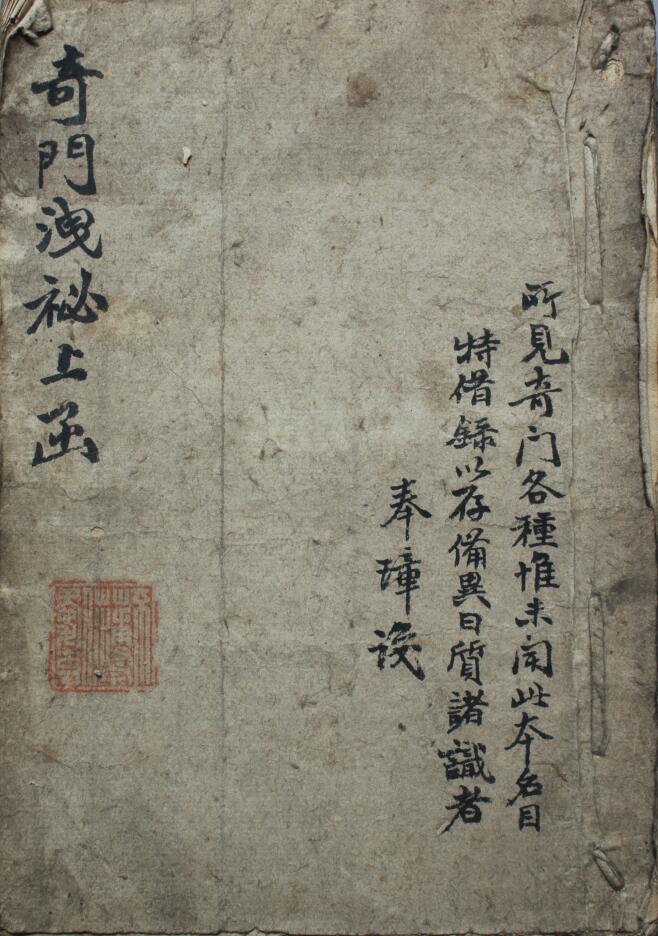 所見奇门各種惟未聞此本名目
特借錄以存備異日質諸識者
奉璋識
奇門洩祕上函